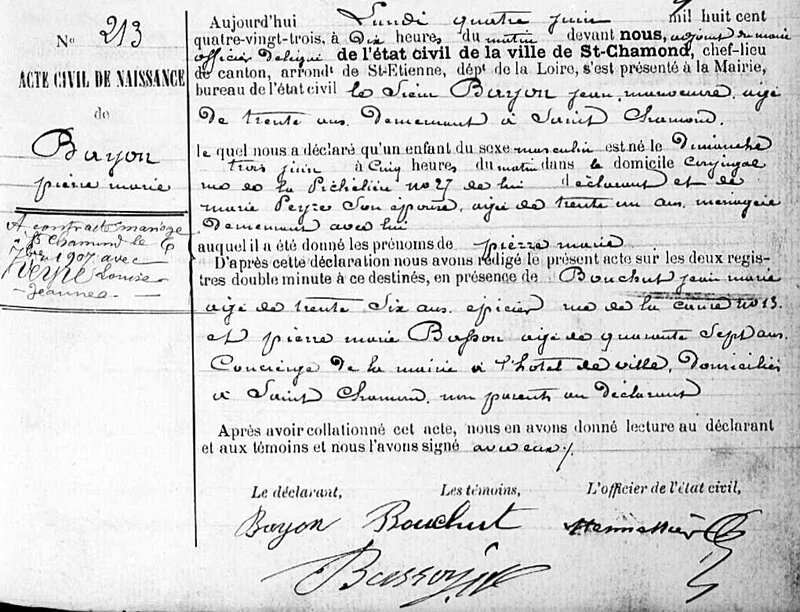 No 213
ACTE CIVIL DE NAISSANCE
de
Bayon
pierre marie
A contracté mariage
St Chamond le 6
7bre 1907 avec
VEYRE Louise
Jeanne
Aujourd'hui Lundi quatre juin mil huit cent
quatre-vingt-trois, à Dix heures du matin devant nous, adjoint du maire
officier délégué de l'état civil de la ville de St-Chamond, chef-lieu
de canton, arrondt de St-Etienne, dépt de la Loire, s'est présenté à la Mairie,
bureau de l'état civil le Sieur Bayon jean, manoeuvre, agé
de trente ans. Demeurant à Saint Chamond.
le quel nous a déclaré qu'un enfant du sexe masculin est né le Dimanche
trois juin à Cinq heures du matin dans le domicile Conjugal
rue de la no 27 de lui déclarant et de
marie Peyre Son épouse, agée de trente un ans, menagère
Demeurant avec lui
auquel il a été donné les prénoms de pierre marie
D'après cette déclaration nous avons rédigé le présent acte sur les deux regis-
tres double minute à ce destinés, en présence de Bouchut jean marie
agé de trente Six ans. epicier rue de la no 13.
et pierre marie Basson agé de quarante Sept ans.
Concierge de la mairie à l'hotel de ville, Domiciliés
à Saint Chamond, non parents au déclarant
Après avoir collationné cet acte, nous en avons donné lecture au déclarant
et aux témoins et nous l'avons signé avec eux
Le déclarant, Les témoins, L'officier de l'état civil,
Bayon Bouchut
Basson